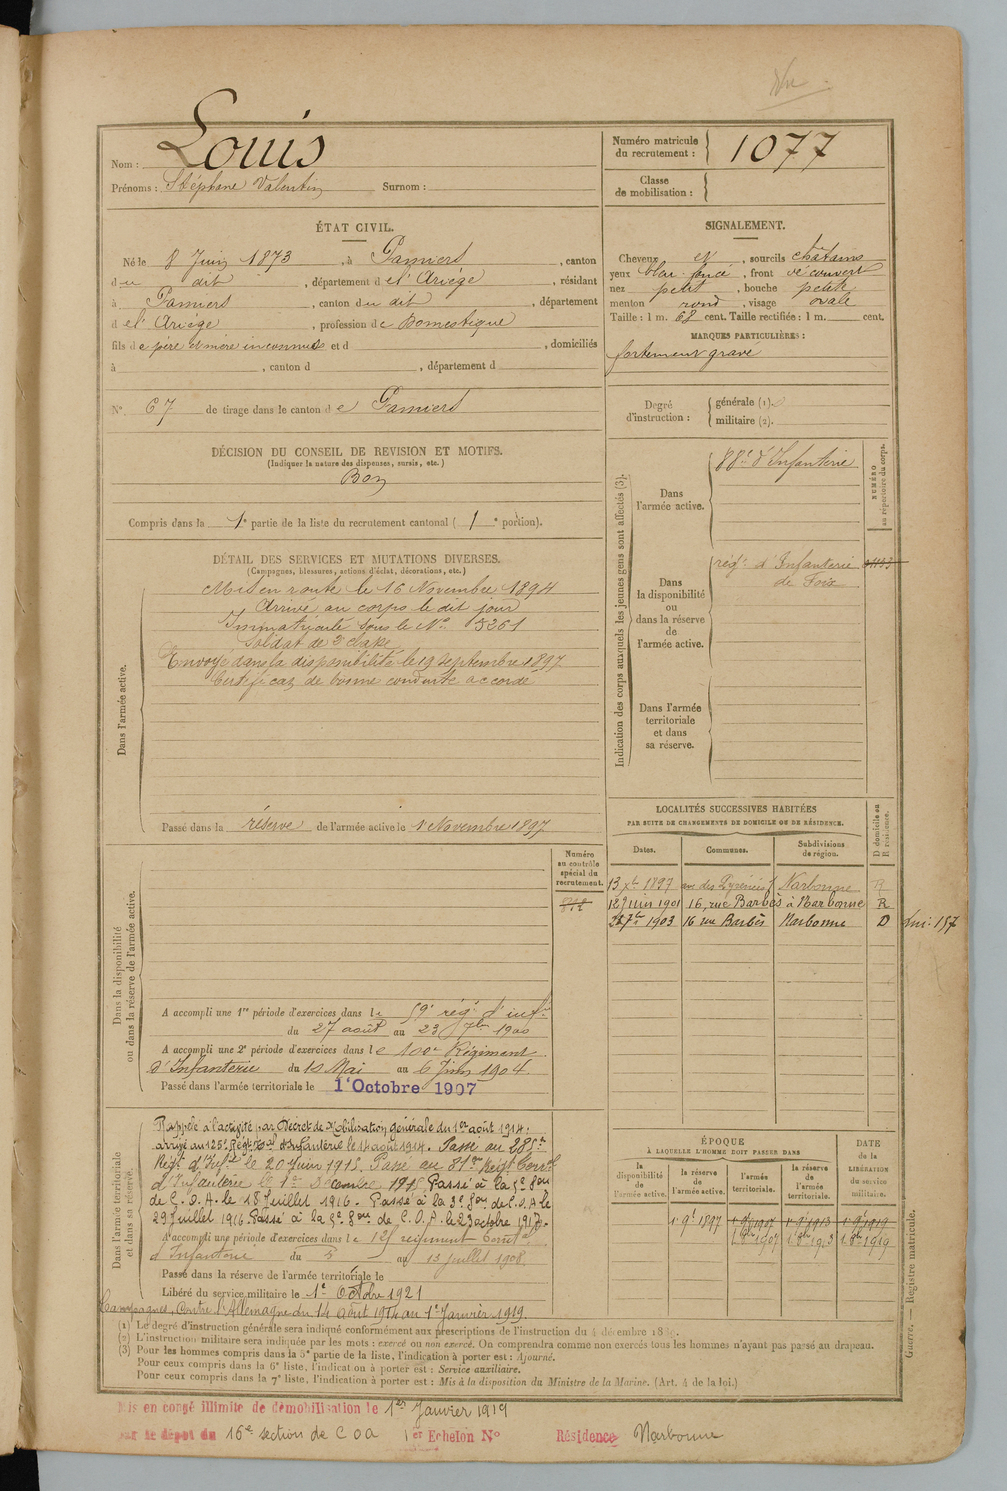 Nom : Louis
Prénoms : Stéphane Valentin Surnom :
Numéro matricule du recrutement : 1077
Classe de mobilisation :
ÉTAT CIVIL.
Né le 8 Juin 1873, à Pamiers, canton
du dit, département de l'Ariége, résidant
à Pamiers, canton du dit, département
de l'Ariége, profession de Domestique
fils de père et mère inconnus et d , domiciliés
à , canton d , département d
N° 67 de tirage dans le canton de Pamiers
SIGNALEMENT.
Cheveux et, sourcils châtains
yeux bleu foncé, front découvert
nez petit, bouche petite
menton rond, visage ovale
Taille : 1 m. 68 cent. Taille rectifiée : 1 m. cent.
MARQUES PARTICULIÈRES :
fortement gravé
Degré d'instruction : générale (1).
militaire (2).
DÉCISION DU CONSEIL DE REVISION ET MOTIFS.
(Indiquer la nature des dispenses, sursis, etc.)
Bon
Compris dans la 1e partie de la liste du recrutement cantonal (1e portion).
DÉTAIL DES SERVICES ET MUTATIONS DIVERSES.
(Campagnes, blessures, actions d'éclat, décorations, etc.)
Dans l'armée active.
Mis en route le 16 Novembre 1894
Arrivé au corps le dit jour
Immatriculé sous le N° 5261
Soldat de 2e classe
Envoyé dans la disponibilité le 19 septembre 1897
Certificat de bonne conduite accordé
Passé dans la réserve de l'armée active le 1 Novembre 1897
Indication des corps auxquels les jeunes gens sont affectés (3).
Dans l'armée active.
88e d'Infanterie
NUMÉRO au répertoire du corps.
Dans la disponibilité ou dans la réserve de l'armée active.
régt d'Infanterie
de Foix
Dans l'armée territoriale et dans sa réserve.
LOCALITÉS SUCCESSIVES HABITÉES
PAR SUITE DE CHANGEMENTS DE DOMICILE OU DE RÉSIDENCE.
Dates. Communes. Subdivisions de région. D domicile ou R résidence.
13 Xbre 1897 Narbonne R
12 Juin 1901 16, rue Barbès à Narbonne R
7bre 1903 16 rue Barbès Narbonne D
Dans la disponibilité ou dans la réserve de l'armée active.
Numéro au contrôle spécial du recrutement.
A accompli une 1re période d'exercices dans le 59e régt d'infie
du 27 août au 23 7bre 1900
A accompli une 2e période d'exercices dans le 100e Régiment
d'Infanterie du 10 Mai au 6 Juin 1904.
Passé dans l'armée territoriale le 1er Octobre 1907
Dans l'armée territoriale et dans sa réserve.
Rappelé à l'activité par Décret de Mobilisation générale du 1er août 1914.
arrivé au 125e Régt Teal d'Infanterie le 14 août 1914. Passé au 285e
Régt d'Infie le 20 Juin 1915. Passé au 81me Régt Terral
d'Infanterie le 1er Décembre 1915 Passé à la 5e Son
de C. O. A. le 18 Juillet 1916. Passé à la 3e Son de C.O.A le
29 Juillet 1916. Passé à la 5e Son de C. O. A. le 23 octobre 1917.
A accompli une période d'exercices dans le 125 régiment Terral
d'Infanterie du 5 au 13 Juillet 1908.
Passé dans la réserve de l'armée territoriale le
Libéré du service militaire le 1er Octobre 1921
Campagnes, Contre l'Allemagne du 14 août 1914 au 1er Janvier 1919.
ÉPOQUE
À LAQUELLE L'HOMME DOIT PASSER DANS
la disponibilité de l'armée active. la réserve de l'armée active. l'armée territoriale. la réserve de l'armée territoriale.
DATE de la LIBÉRATION du service militaire.
1 9bre 1897 1 9bre 1907 1 9bre 1913 1 9bre 1919
1 8bre 1907 1 8bre 1913 1 8bre 1919
(1) Le degré d'instruction générale sera indiqué conformément aux prescriptions de l'instruction du 4 décembre 1889.
(2) L'instruction militaire sera indiquée par les mots : exercé ou non exercé. On comprendra comme non exercés tous les hommes n'ayant pas passé au drapeau.
(3) Pour les hommes compris dans la 5e partie de la liste, l'indication à porter est : Ajourné.
Pour ceux compris dans la 6e liste, l'indication à porter est : Service auxiliaire.
Pour ceux compris dans la 7e liste, l'indication à porter est : Mis à la disposition du Ministre de la Marine. (Art. 4 de la loi.)
Guerre. — Registre matricule.
Mis en congé illimité de démobilisation le 1er Janvier 1919
par le dépôt du 16e section de C O A 1er Echelon N° Résidence Narbonne